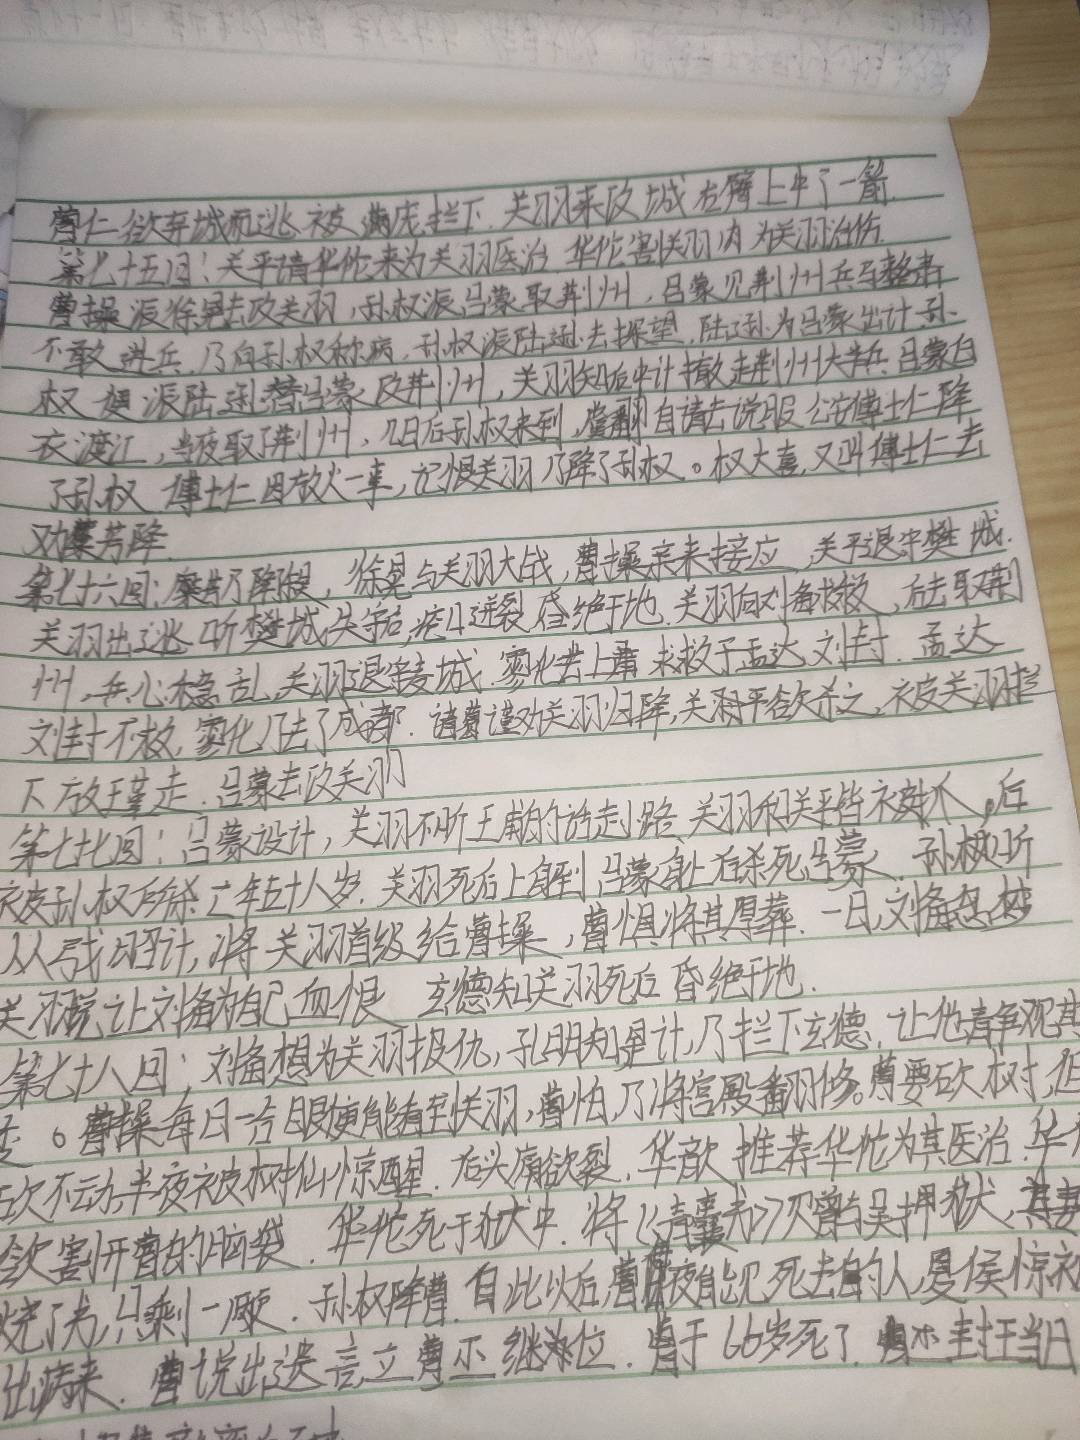 曹仁欲弃城而逃,被满宠拦下.关羽来攻城右臂上中了一箭.
第七十五回:关平请华佗来为关羽医治.华佗割关羽肉为关羽治伤.
曹操派徐晃去攻关羽,孙权派吕蒙取荆州,吕蒙见荆州兵马整肃
不敢进兵,乃向孙权称病,孙权派陆逊去探望,陆逊为吕蒙出计.孙
权 派陆逊替吕蒙攻荆州,关羽知后中计撤走荆州大半兵.吕蒙白
衣渡江,当夜取了荆州,几日后孙权来到,虞翻自请去说服公安傅士仁降
了孙权 傅士仁因放火一事,记恨关羽乃降了孙权。权大喜,又叫傅士仁去
劝糜芳降.
第七十六回:糜芳乃降,徐晃与关羽大战,曹操亲来接应,关平退中樊城.
关羽出逃听樊城失守后,疮口迸裂昏绝于地.关羽向刘备求救,后去取荆
州,兵心稳乱,关羽退往麦城.廖化去上庸求救于孟达刘封.孟达
刘封不救,廖化乃去了成都.诸葛谨劝关羽归降,关平欲杀之,被关羽拦
下放瑾走.吕蒙去攻关羽
第七十七回:吕蒙设计,关羽不听王甫的话走小路,关羽和关平皆被抓.后
被孙权所杀亡年五十八岁.关羽死后上身到吕蒙身上后杀死吕蒙.孙权听
从张昭计,将关羽首级给曹操,曹惧将其厚葬.一日,刘备忽梦
关羽说让刘备为自己血恨 玄德知关羽死后昏绝于地.
第七十八回:刘备想为关羽报仇,孔明知是计,乃拦下玄德,让他静观其
变。曹操每日一合眼便能看到关羽,曹怕,乃将宫殿翻修。曹要砍树,但
砍不动,半夜被树仙惊醒.后头痛欲裂.华歆推荐华佗为其医治.华佗
欲割开曹的脑袋.华佗死于狱中.将《青囊书》又赠与吴押狱,其妻
烧了书,只剩一页.孙权降曹.自此以后,曹夜夜能见死去的人,夏侯惊被
出病来.曹说出遗言立曹丕继位.曹于66岁死了.曹丕封王当日